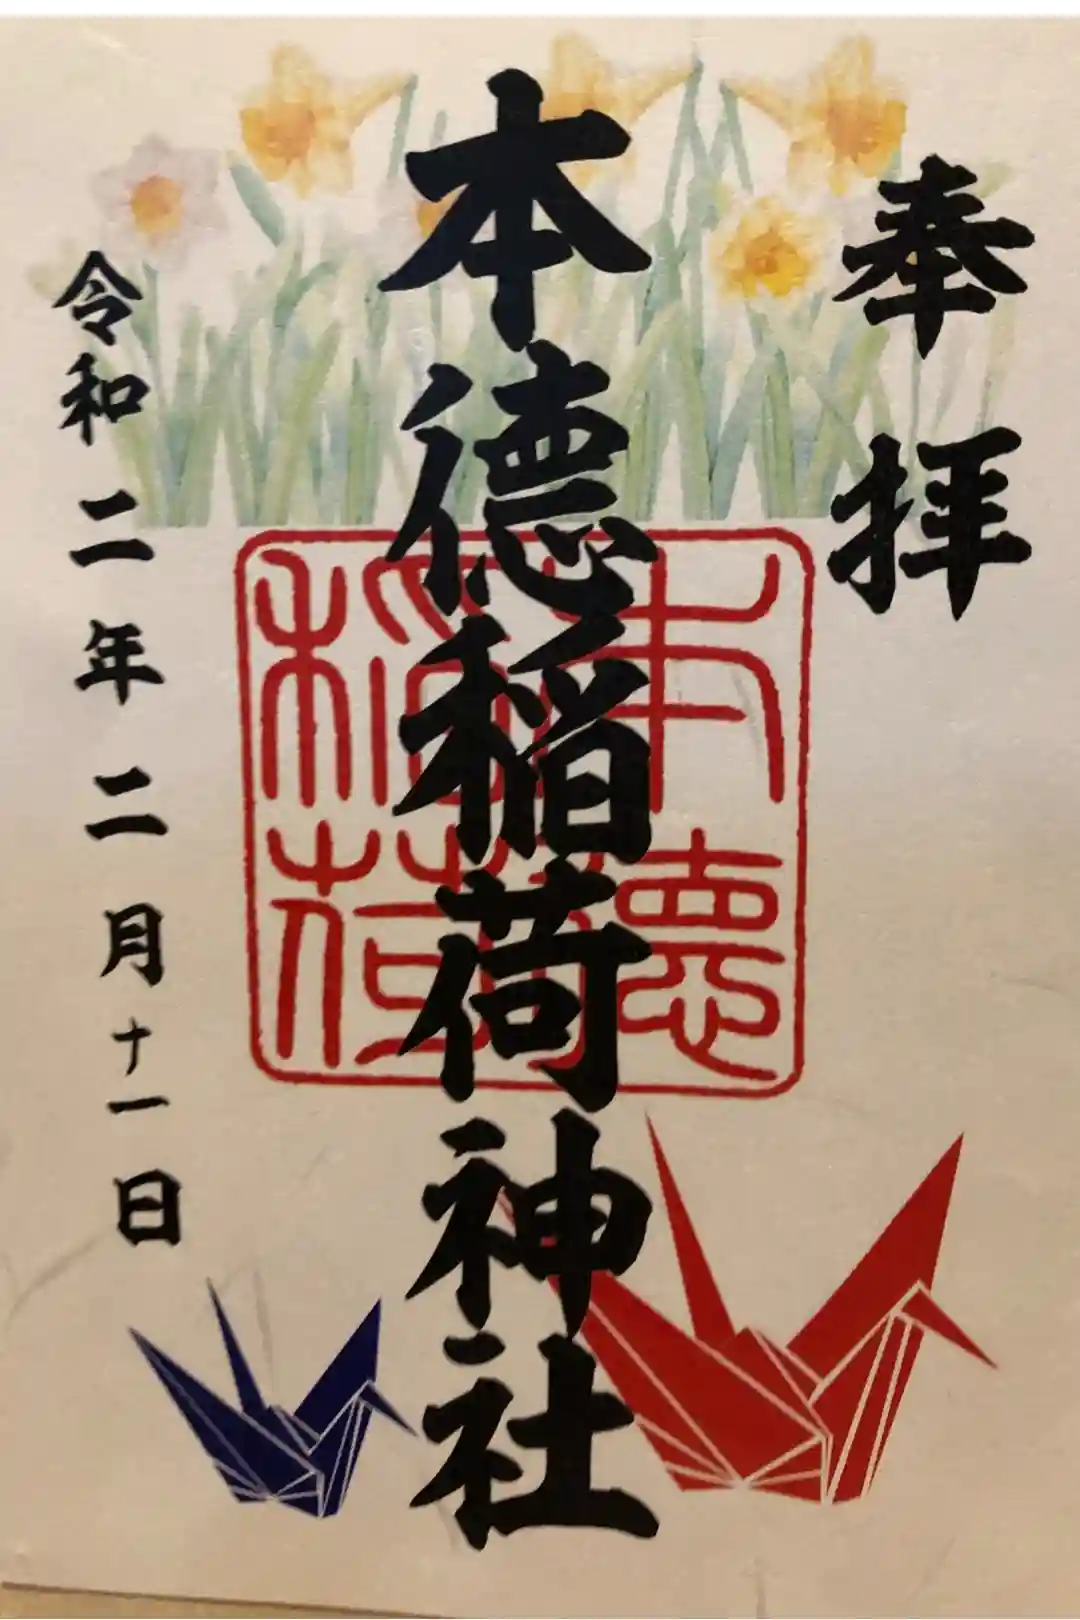 奉拝
本徳稲荷神社
本德
稲荷
令和二年二月十一日